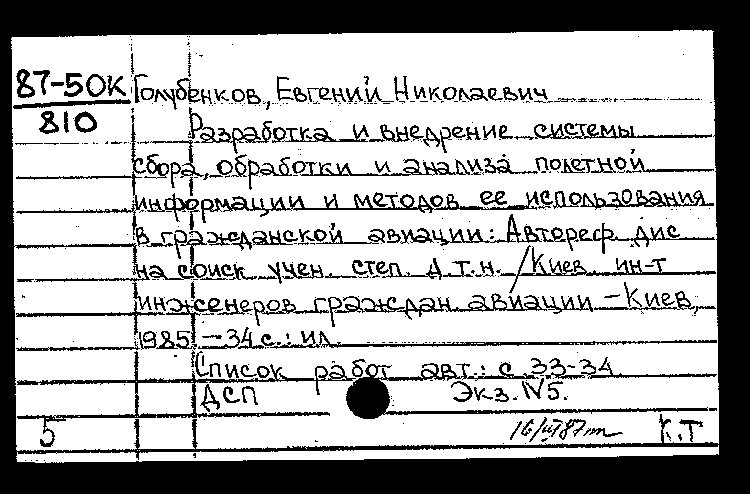 87-50К Голубенков, Евгений Николаевич
810 Разработка и внедрение системы
сбора, обработки и анализа полетной
информации и методов ее использования
в гражданской авиации: Автореф. дис
на соиск учен. степ. д.т.н. /Киев. ин-т
инженеров граждан. авиации –Киев,
1985 –34 с.: ил.
Список работ авт.: с. 33-34.
ДСП Экз. N5.
5 К.Т